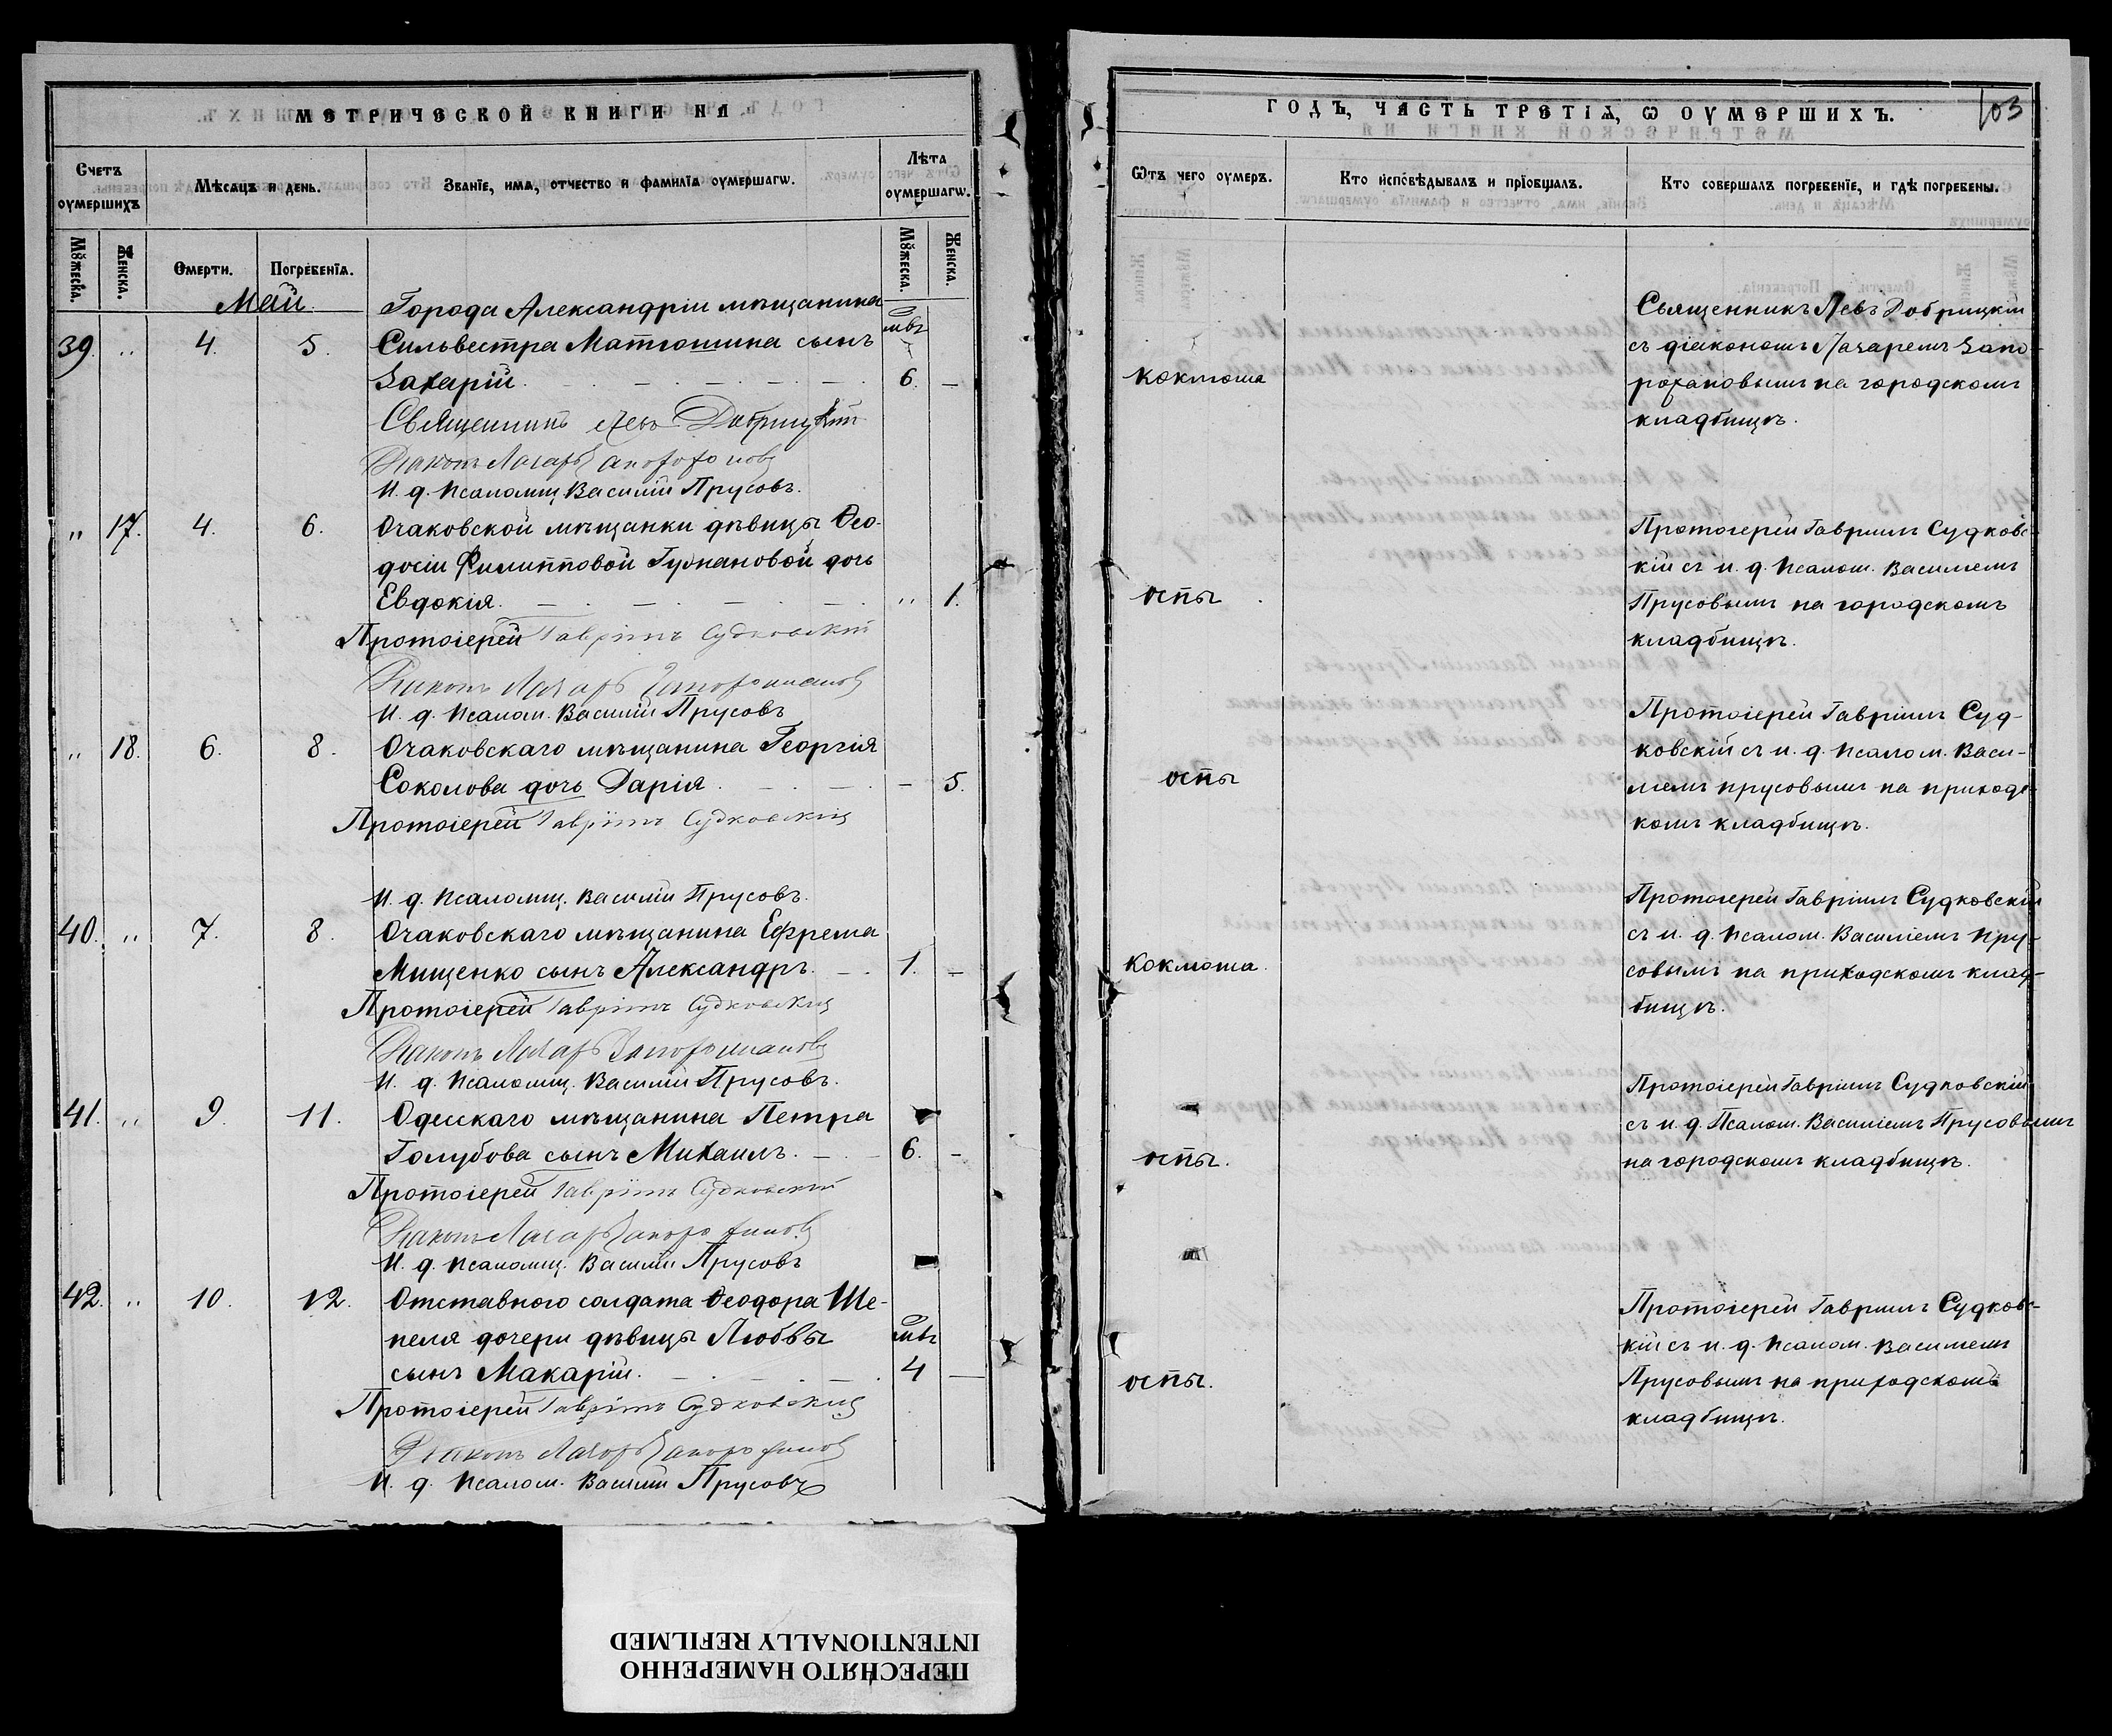 МЕТРИЧЕСКОЙ КНИГИ НА
Счетъ оумершихъ
Мѣсяцъ и день.
Званїе, имѧ, отчество и фамилїѧ оумершагѡ.
Лѣта оумершагѡ.
Мꙋжеска.
Женска.
Смерти.
Погребенїѧ.
Мꙋжеска.
Женска.
Май.
Города Александріи мѣщанина
мѣс.
39. " 4. 5. Сильвестра Матюшина сынъ
Захарій. 6. –
Священникъ Левъ Добрицкій
Діаконъ Лазарь Запорожановъ
И. д. Псаломщ. Василій Прусовъ.
" 17. 4. 6. Очаковской мѣщанки дѣвицы Ѳео-
досіи Филипповой дочь
Евдокія. " 1.
Протоіерей Гавріилъ Судковскій
Діаконъ Лазарь Запорожановъ
И. д. Псалом. Василій Прусовъ
" 18. 6. 8. Очаковскаго мѣщанина Георгія
Соколова дочь Дарія. – 5.
Протоіерей Гавріилъ Судковскій
И. д. Псаломщ. Василій Прусовъ.
40. " 7. 8. Очаковскаго мѣщанина Ефрема
Мищенко сынъ Александръ. 1. –
Протоіерей Гавріилъ Судковскій
Діаконъ Лазарь Запорожановъ
И. д. Псаломщ. Василій Прусовъ.
41. " 9. 11. Одесскаго мѣщанина Петра
Голубова сынъ Михаилъ. 6. –
Протоіерей Гавріилъ Судковскій
Діаконъ Лазарь Запорожановъ
И. д. Псаломщ. Василій Прусовъ
42. " 10. 12. Отставного солдата Ѳеодора Ше-
пеля дочери дѣвицы Любвы мѣс.
сынъ Макарій. 4 –
Протоіерей Гавріилъ Судковскій
Діаконъ Лазарь Запорожановъ
И. д. Псалом. Василій Прусовъ
ГОДЪ, ЧАСТЬ ТРЕТІѦ, Ѡ ОУМЕРШИХЪ.
103
Ѿтъ чего оумеръ.
Кто исповѣдывалъ и прїобщалъ.
Кто совершалъ погребенїе, и гдѣ погребены.
Священникъ Левъ Добрицкій
съ діакономъ Лазаремъ Запо-
коклюша рожановымъ на городскомъ
кладбищѣ.
Протоіерей Гавріилъ Судковс-
кій съ и. д. Псалом. Василіемъ
оспы Прусовымъ на городскомъ
кладбищѣ.
Протоіерей Гавріилъ Суд-
ковскій съ и. д. Псалом. Васи-
оспы ліемъ Прусовымъ на приходс-
комъ кладбищѣ.
Протоіерей Гавріилъ Судковскій
съ и. д. Псалом. Василіемъ Пру-
коклюша. совымъ на приходскомъ клад-
бищѣ.
Протоіерей Гавріилъ Судковскій
съ и. д. Псалом. Василіемъ Прусовымъ
оспы. на городскомъ кладбищѣ.
Протоіерей Гавріилъ Судковс-
кій съ и. д. Псалом. Василіемъ
оспы. Прусовымъ на приходскомъ
кладбищѣ.
ПЕРЕСНЯТО НАМЕРЕННО
INTENTIONALLY REFILMED